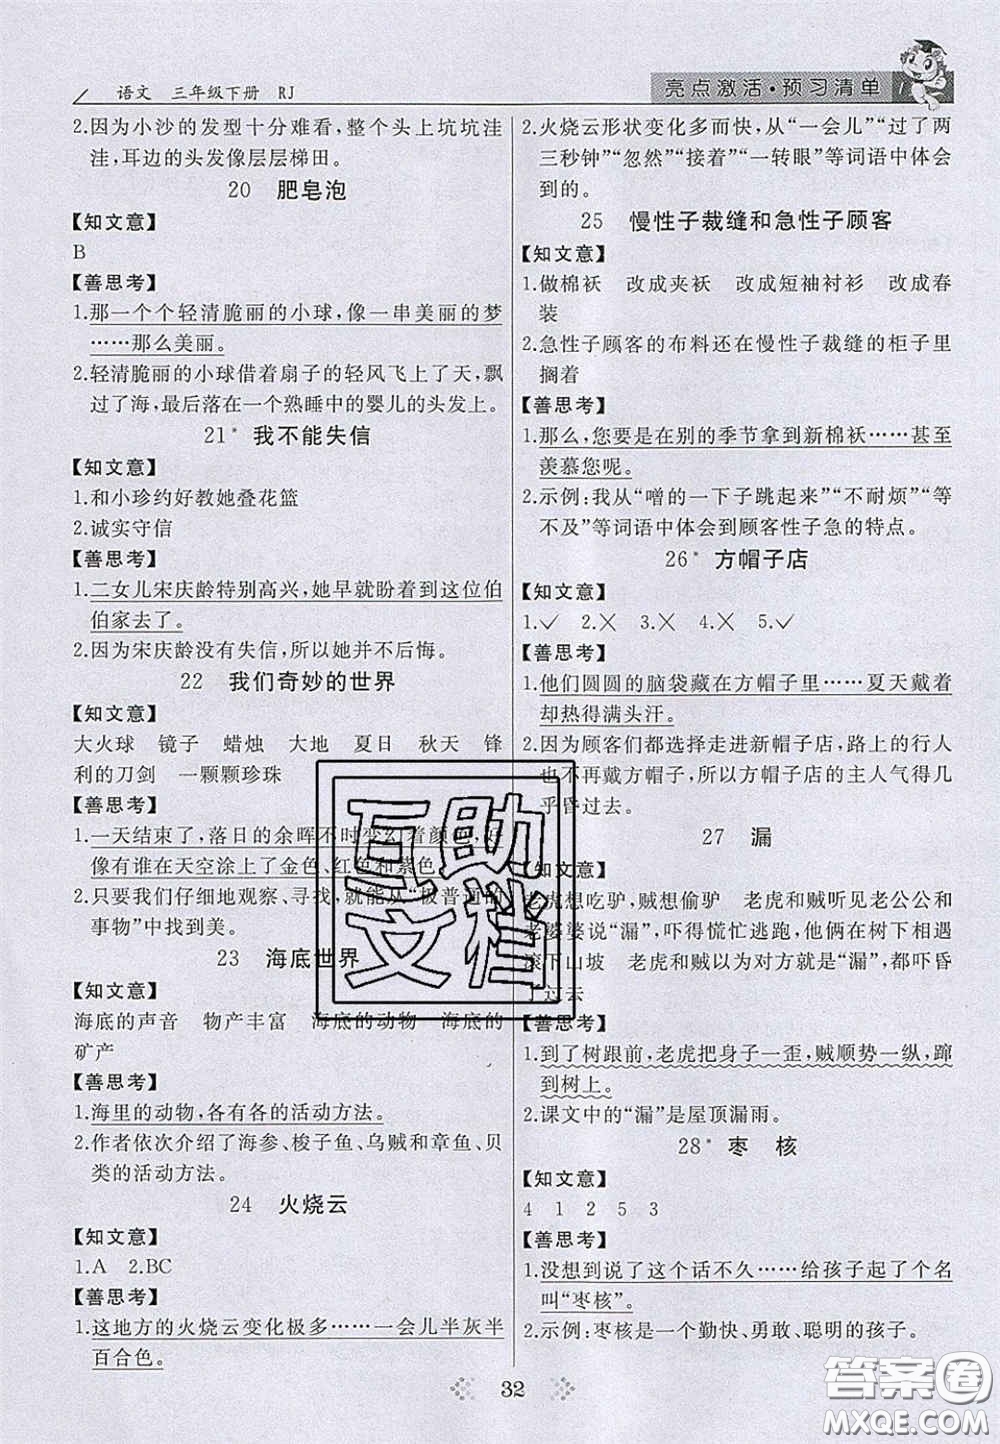 语文 三年级下册 RJ
亮点激活·预习清单
2.因为小沙的发型十分难看,整个头上坑坑洼
洼,耳边的头发像层层梯田。
20 肥皂泡
【知文意】
B
【善思考】
1.那一个个轻清脆丽的小球,像一串美丽的梦
……那么美丽。
2.轻清脆丽的小球借着扇子的轻风飞上了天,飘
过了海,最后落在一个熟睡中的婴儿的头发上。
21* 我不能失信
【知文意】
1.和小珍约好教她叠花篮
2.诚实守信
【善思考】
1.二女儿宋庆龄特别高兴,她早就盼着到这位伯
伯家去了。
2.因为宋庆龄没有失信,所以她并不后悔。
22 我们奇妙的世界
【知文意】
大火球 镜子 蜡烛 大地 夏日 秋天 锋
利的刀剑 一颗颗珍珠
【善思考】
1.一天结束了,落日的余晖不时变幻着颜色,好
像有谁在天空涂上了金色、红色和紫色。
2.只要我们仔细地观察、寻找,就能从“极普通的
事物”中找到美。
23 海底世界
【知文意】
海底的声音 物产丰富 海底的动物 海底的
矿产
【善思考】
1.海里的动物,各有各的活动方法。
2.作者依次介绍了海参、梭子鱼、乌贼和章鱼、贝
类的活动方法。
24 火烧云
【知文意】
1.A 2.BC
【善思考】
1.这地方的火烧云变化极多……一会儿半灰半
百合色。
2.火烧云形状变化多而快,从“一会儿”“过了两
三秒钟”“忽然”“接着”“一转眼”等词语中体会
到的。
25 慢性子裁缝和急性子顾客
【知文意】
1.做棉袄 改成夹袄 改成短袖衬衫 改成春
装
2.急性子顾客的布料还在慢性子裁缝的柜子里
搁着
【善思考】
1.那么,您要是在别的季节拿到新棉袄……甚至
羡慕您呢。
2.示例:我从“噌的一下子跳起来”“不耐烦”“等
不及”等词语中体会到顾客性子急的特点。
26* 方帽子店
【知文意】
1.✓ 2.✕ 3.✕ 4.✕ 5.✓
【善思考】
1.他们圆圆的脑袋藏在方帽子里……夏天戴着
却热得满头汗。
2.因为顾客们都选择走进新帽子店,路上的行人
也不再戴方帽子,所以方帽子店的主人气得几
乎昏过去。
27 漏
【知文意】
老虎想吃驴,贼想偷驴 老虎和贼听见老公公和
老婆婆说“漏”,吓得慌忙逃跑,他俩在树下相遇
滚下山坡 老虎和贼以为对方就是“漏”,都吓昏
了过去
【善思考】
1.到了树跟前,老虎把身子一歪,贼顺势一纵,蹿
到树上。
2.课文中的“漏”是屋顶漏雨。
28* 枣 核
【知文意】
4 1 2 5 3
【善思考】
1.没想到说了这个话不久……给孩子起了个名
叫“枣核”。
2.示例:枣核是一个勤快、勇敢、聪明的孩子。
32
互助
文档
答案圈
MXQE.COM